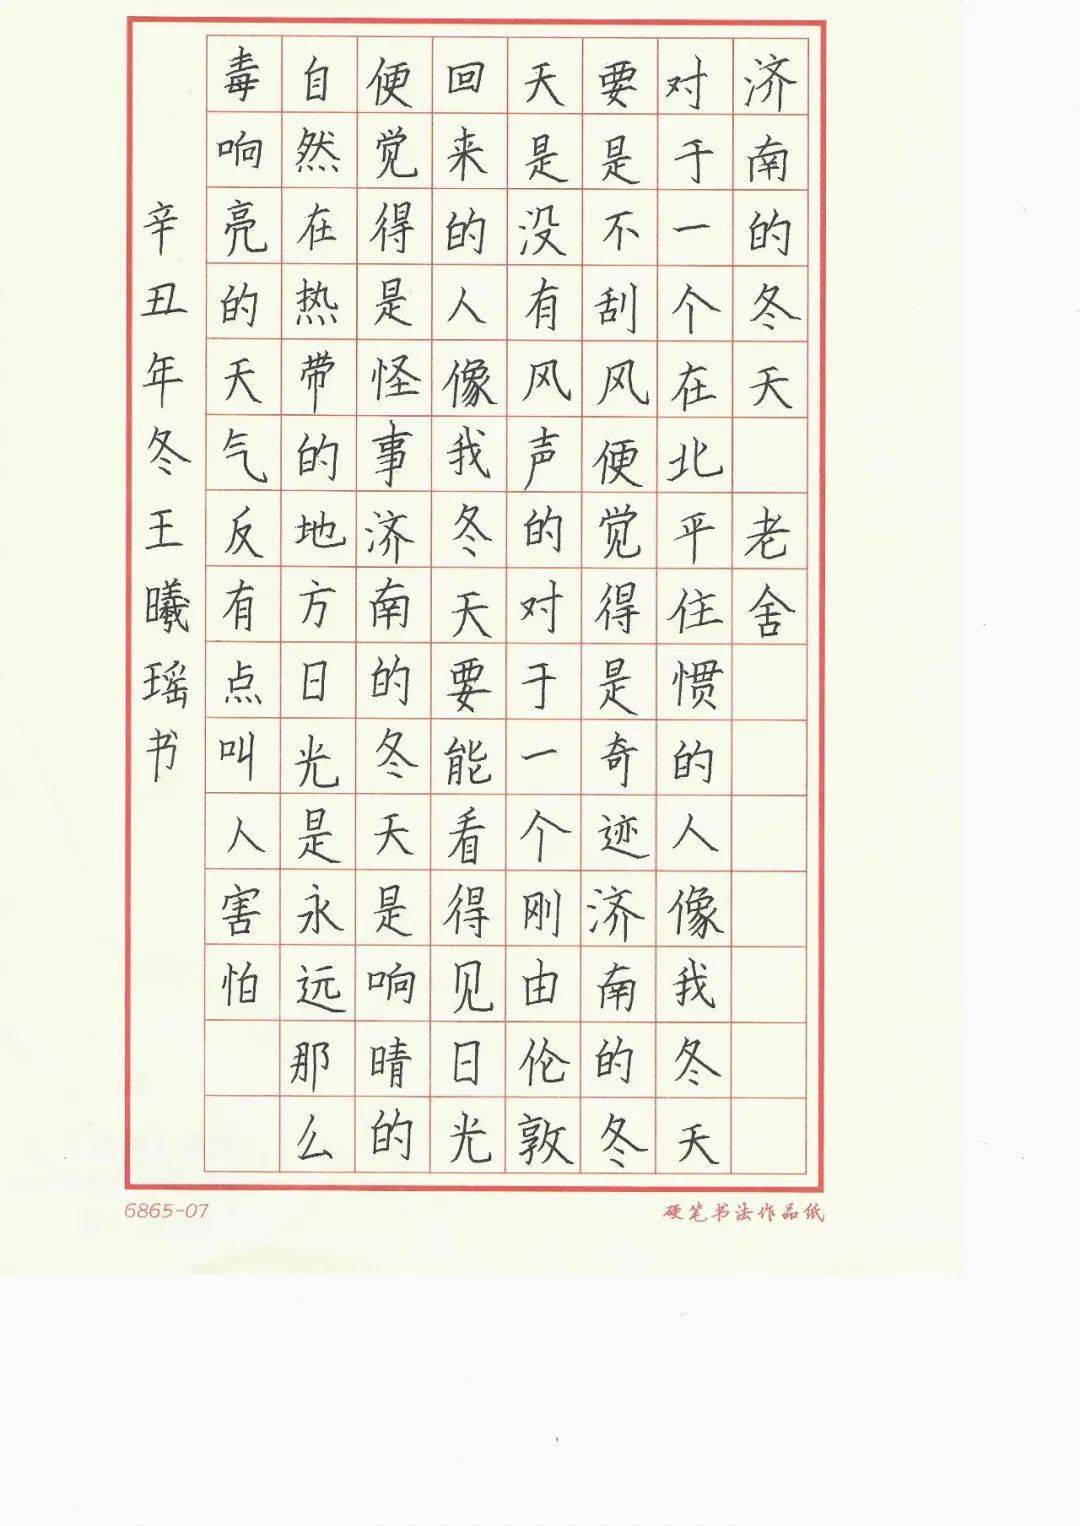 济南的冬天 老舍
对于一个在北平住惯的人像我冬天
要是不刮风便觉得是奇迹济南的冬
天是没有风声的对于一个刚由伦敦
回来的人像我冬天要能看得见日光
便觉得是怪事济南的冬天是响晴的
自然在热带的地方日光是永远那么
毒响亮的天气反有点叫人害怕
辛丑年冬王曦瑶书
6865-07
硬笔书法作品纸